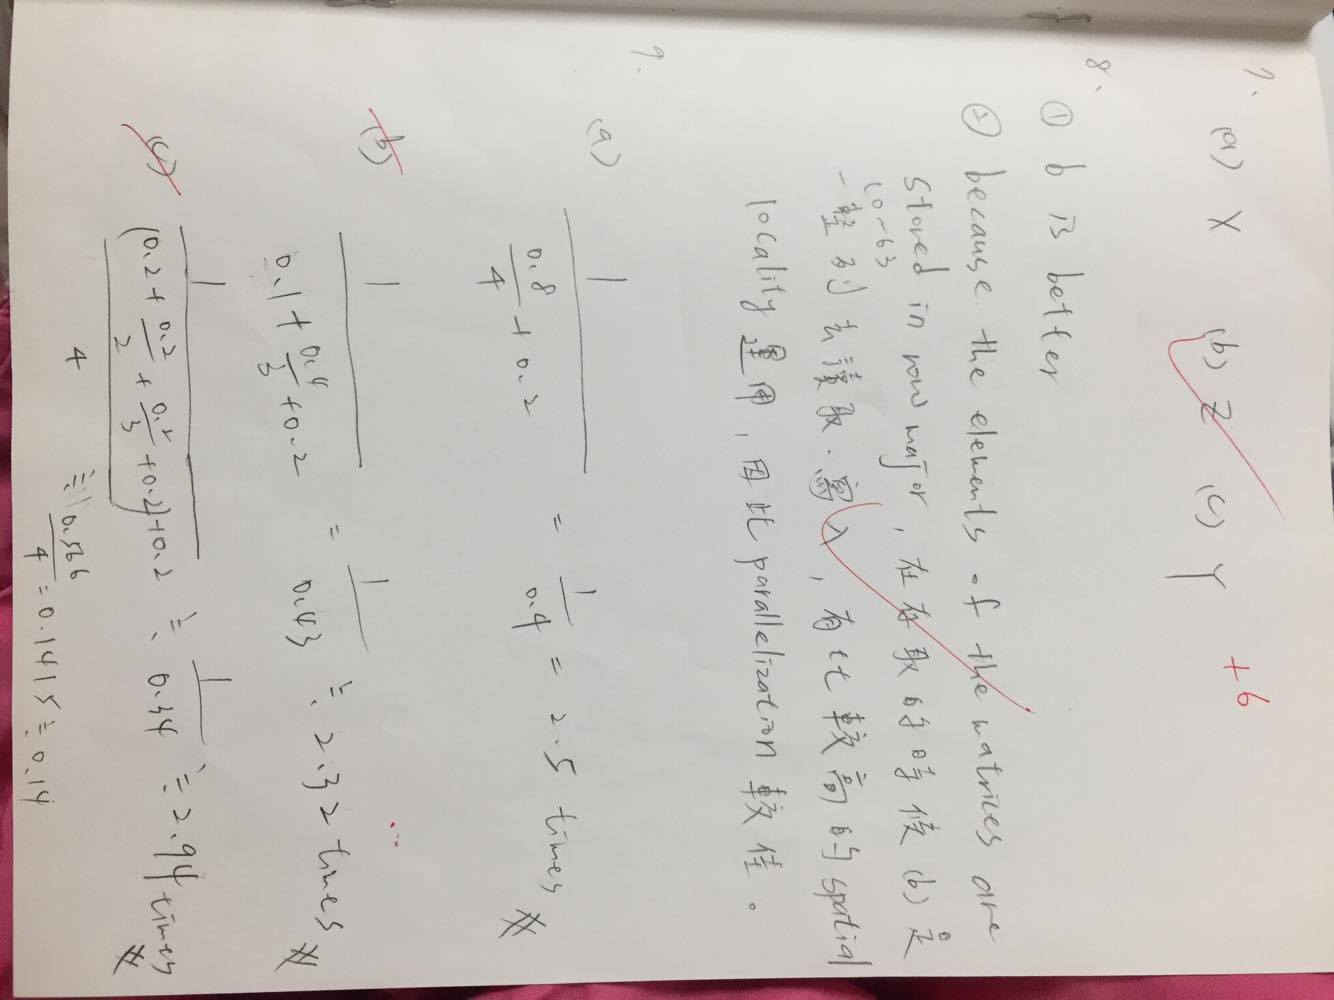 7.
(a) X (b) Z (c) Y +6
8.
① b is better
② because the elements of the matrices are
stored in row major, 在存取的時候 (b) 是
(0~63
一整列去讀取.寫入, 有比較高的 spatial
locality 運用, 因此 parallelization 較佳。
9.
(a) 1 / (0.8/4 + 0.2) = 1/0.4 = 2.5 times
(b) 1 / (0.1 + 0.4/3 + 0.2) = 1/0.43 ≒ 2.32 times
(c) 1 / ((0.2 + 0.2/2 + 0.2/3 + 0.2)/4 + 0.2) ≒ 1/0.34 ≒ 2.94 times
≒ 0.566/4 = 0.1415 ≒ 0.14